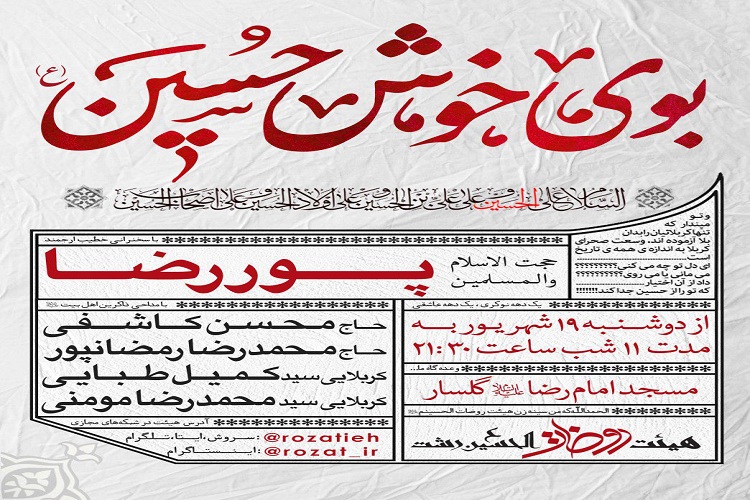 بوی خوش حسین (ع)
السلام علی الحسین و علی علی بن الحسین و علی اولاد الحسین و علی اصحاب الحسین
و تو
مپندار که
تنها کربلائیان را بدان
بلا آزموده اند، وسعت صحرای
کربلا به اندازه ی همه ی تاریخ
است
ای دل تو چه می کنی؟؟؟؟؟؟؟؟؟؟
می مانی یا می روی؟؟؟؟؟؟؟؟؟؟
داد از آن اختیار
که تو را از حسین جدا کند!!!!!!!
با سخنرانی خطیب ارجمند
حجت الاسلام
والمسلمین
پوررضا
با مداحی ذاکرین اهل بیت
حاج محسن کاشفی
حاج محمدرضا رمضانپور
کربلایی سید کمیل طبایی
کربلایی سید محمدرضا مومنی
آدرس هیئت در شبکه‌های مجازی
سروش، ایتا، تلگرام : @rozatieh
اینستاگرام : @rozat_ir
یک دهه نوکری، یک دهه عاشقی
از دوشنبه ۱۹ شهریور به
مدت ۱۱ شب ساعت ۲۱:۳۰
وعده گاه ما...
مسجد امام رضا علیه السلام گلسار
الحمدالله که من سینه زن هیئت روضات الحسینم
هیئت روضات الحسین رشت